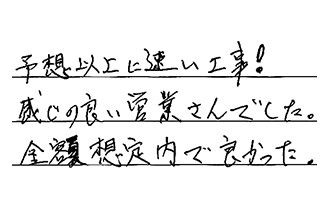 予想以上に速い工事!
感じの良い営業さんでした。
金額想定内で良かった。